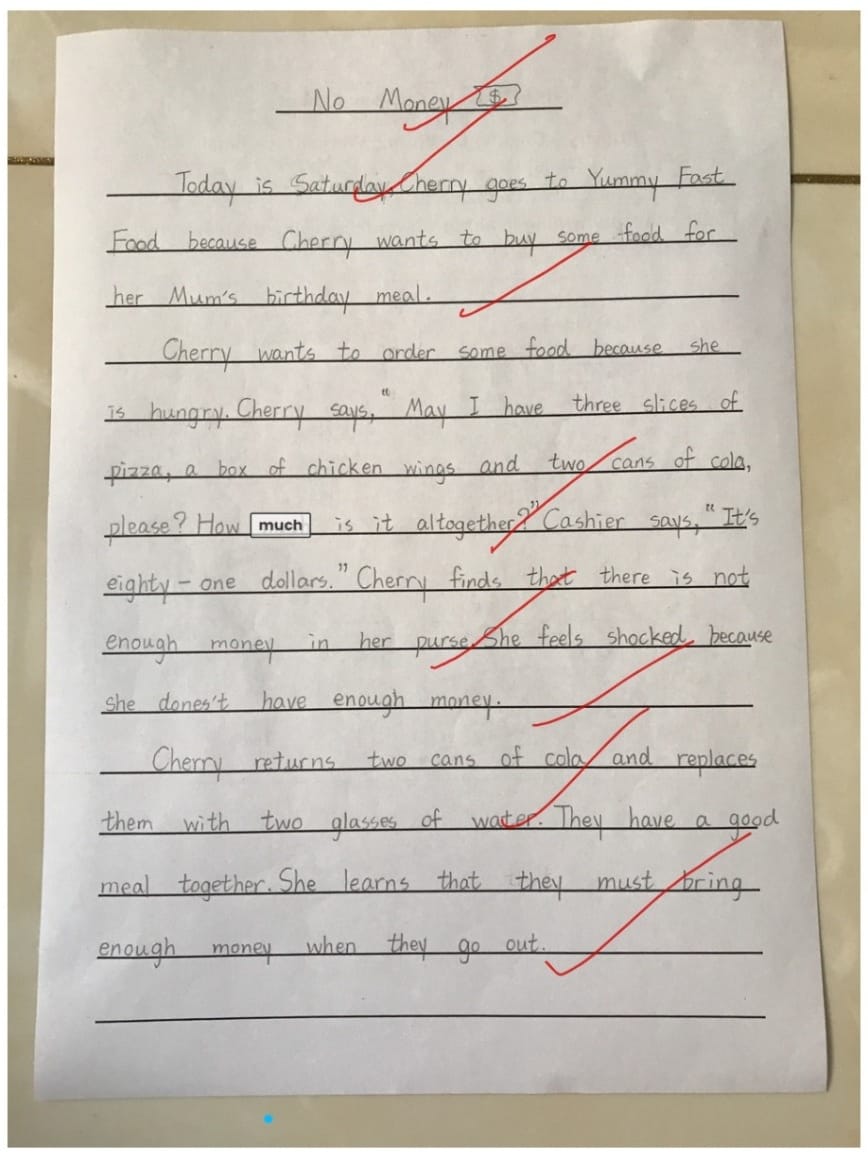 No Money $
Today is Saturday. Cherry goes to Yummy Fast
Food because Cherry wants to buy some food for
her Mum's birthday meal.
Cherry wants to order some food because she
is hungry. Cherry says, “ May I have three slices of
pizza, a box of chicken wings and two cans of cola,
please? How much is it altogether?” Cashier says, “ It's
eighty - one dollars.” Cherry finds that there is not
enough money in her purse. She feels shocked because
she dones't have enough money.
Cherry returns two cans of cola and replaces
them with two glasses of water. They have a good
meal together. She learns that they must bring
enough money when they go out.